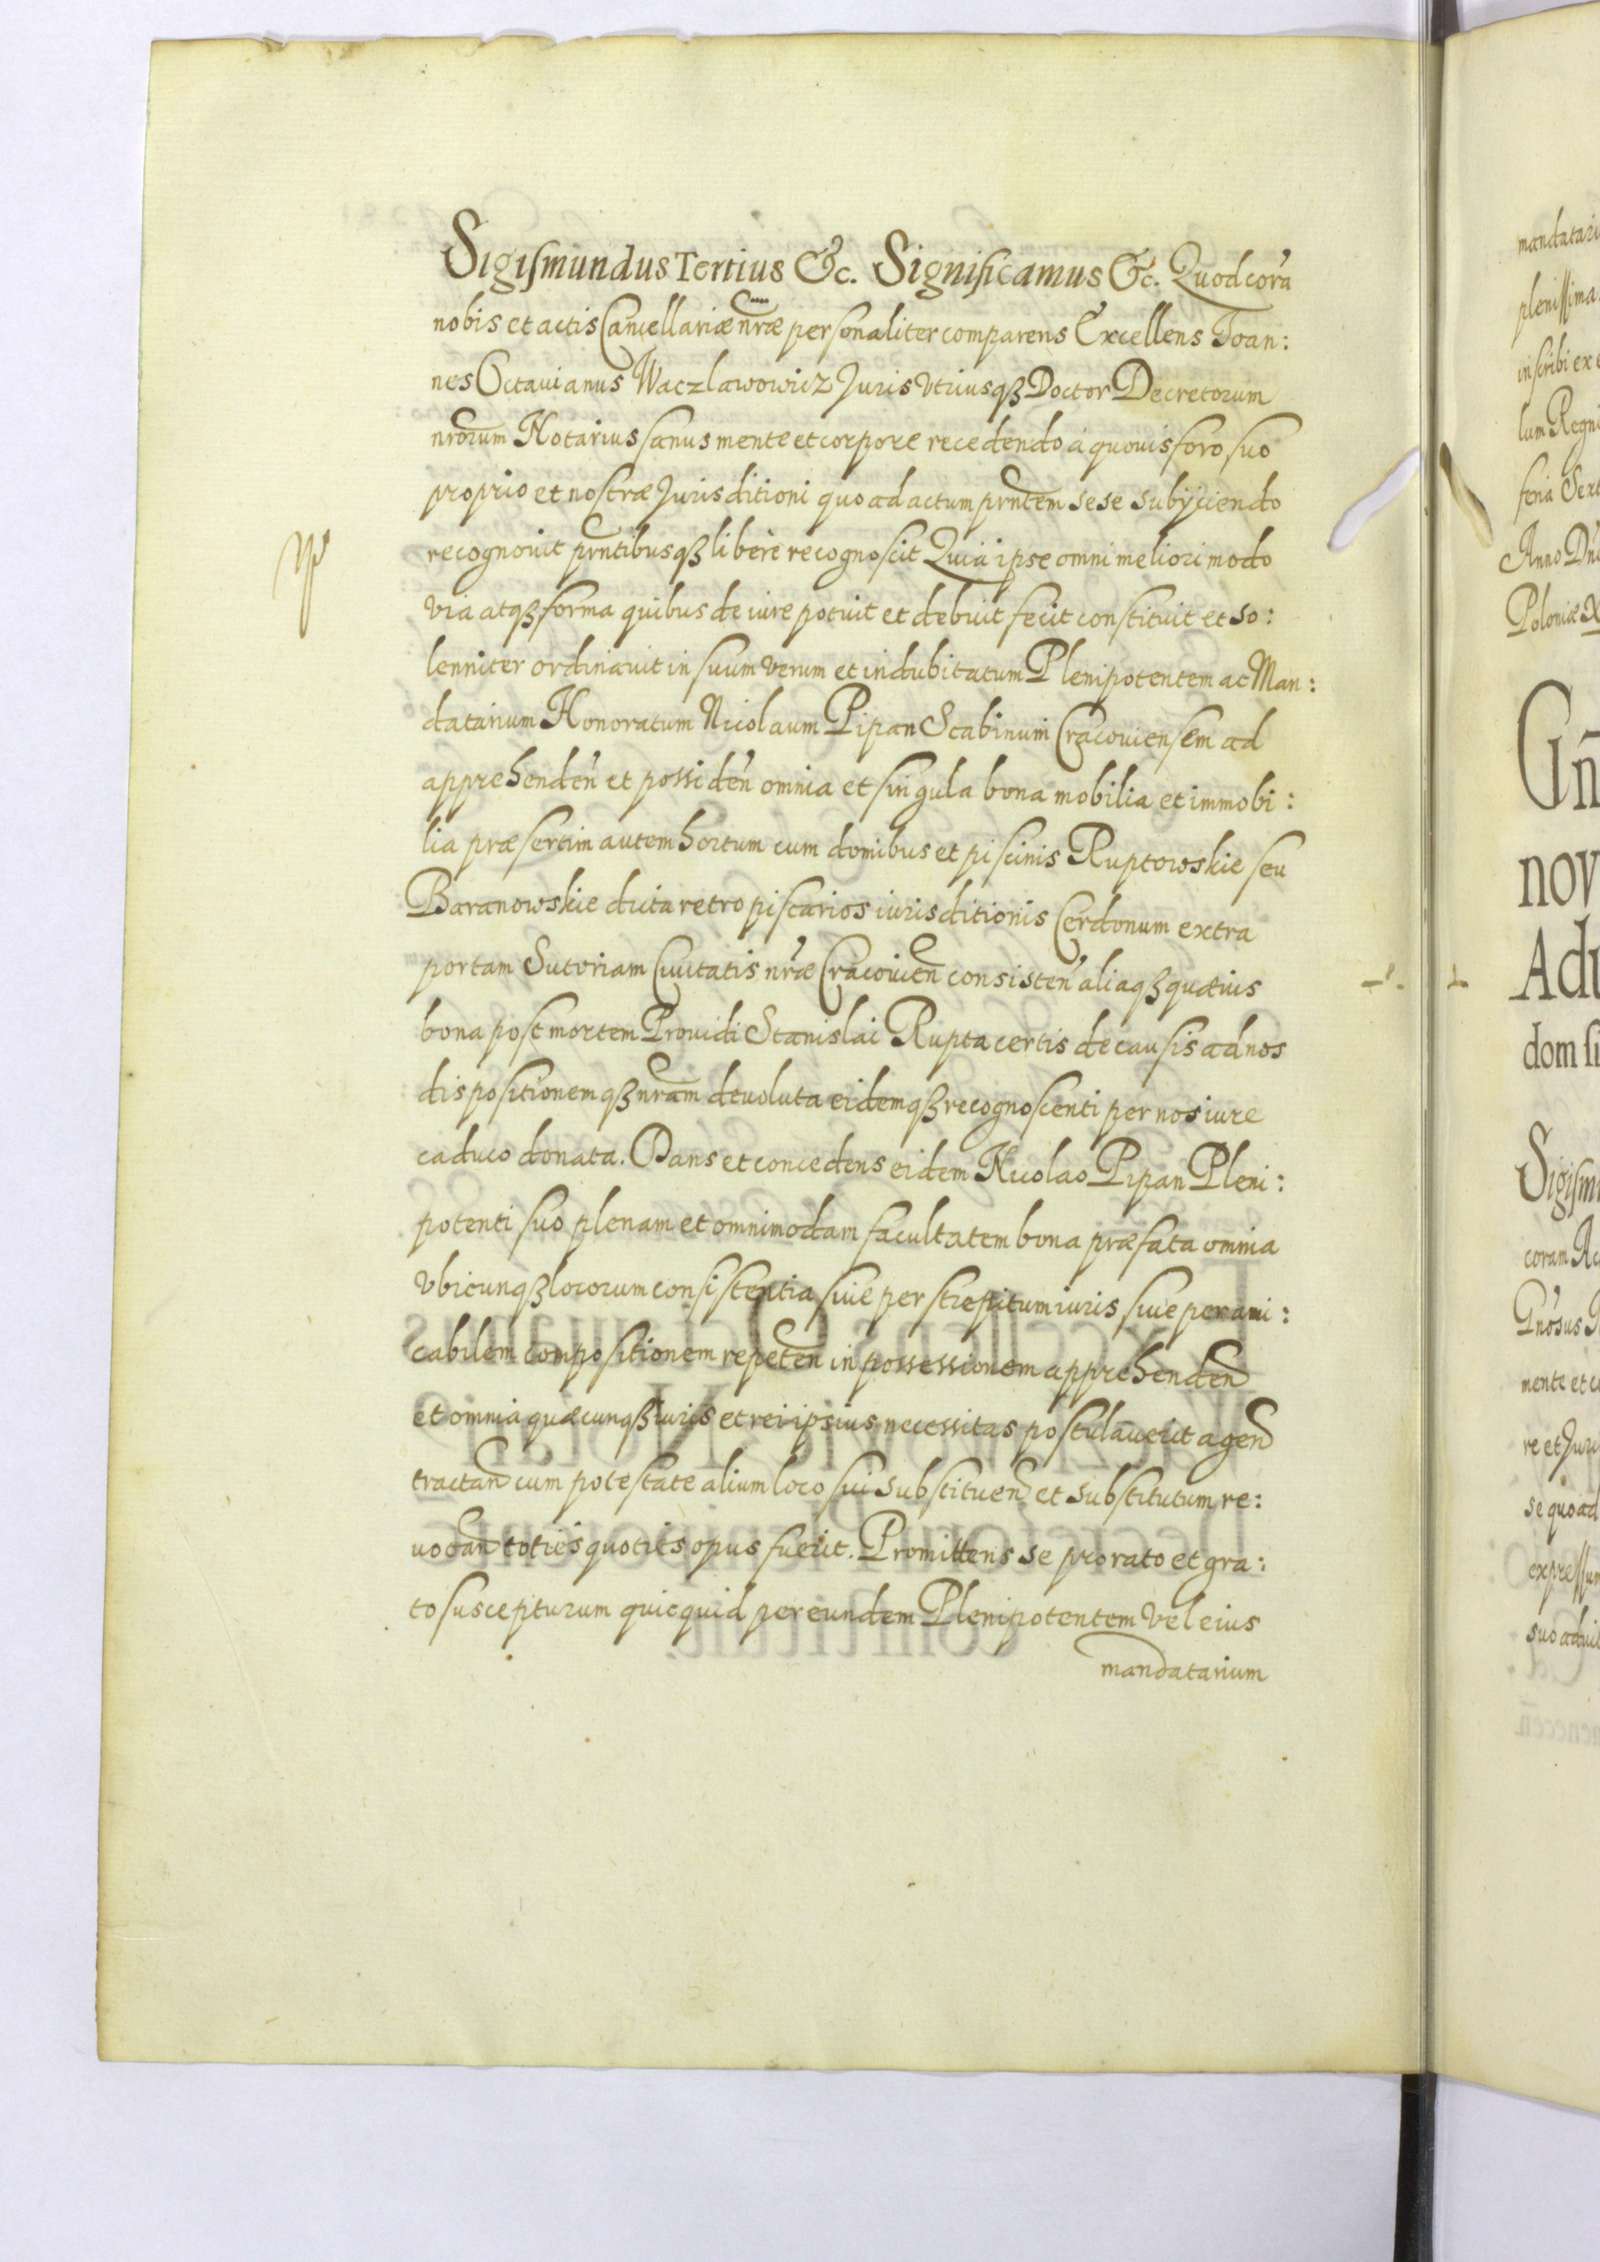 Sigismundus Tertius &c. Significamus &c. Quod corā
nobis et actis Cancellariæ nr̃æ personaliter comparens Excellens Joan:
nes Octavianus Waczlawowicz Juris Vtriusqȝ Doctor Decretorum
nr̃orum Notarius sanus mente et corpore recedendo à quovis foro suo
proprio et nostræ Jurisditioni quo ad actum prñtem sese subijciendo
recognovit prñtibusqȝ liberè recognoscit Quia ipse omni meliori modo
via atqȝ forma quibus de iure potuit et debuit fecit constituit et so:
lenniter ordinavit in suum verum et indubitatum Plenipotentem ac Man:
datarium Honoratum Nicolaum Pipan Scabinum Cracoviensem ad
apprehendeñ et possideñ omnia et singula bona mobilia et immobi:
lia præsertim autem hortum cum domibus et piscinis Ruptowskie seu
Baranowskie dicta retro piscarios iurisditionis Cerdonum extra
portam Sutoriam Civitatis nr̃æ Cracovieñ consisteñ aliaqȝ quævis
bona post mortem Providi Stanislai Rupta certis de causis ad nos
dispositionemqȝ nr̃am devoluta eidemqȝ recognoscenti per nos iure
caduco donata. Dans et concedens eidem Nicolao Pipan Pleni:
potenti suo plenam et omnimodam facultatem bona præfata omnia
Vbicunqȝ locorum consistentia sive per strepitum iuris sive per ami:
cabilem compositionem repeteñ in possessionem apprehendeñ
et omnia quæcunqȝ iuris et rei ipsius necessitas postulaverit ageñ
tractañ cum potestate alium loco sui substitueñ et substitutum re:
vocañ toties quoties opus fuerit. Promittens se pro rato et gra:
to suscepturum quicquid per eundem Plenipotentem vel eius
mandatarium
mandatari
plenissima
inscribi ex e
lum Regni
feria Sext
Anno Dñi
Poloniæ X
Gñ
nov
Adu
dom si
Sigism
coram Ac
Gñosus
mente et c
re et Juri
se quo ad
expressum
suo adhib